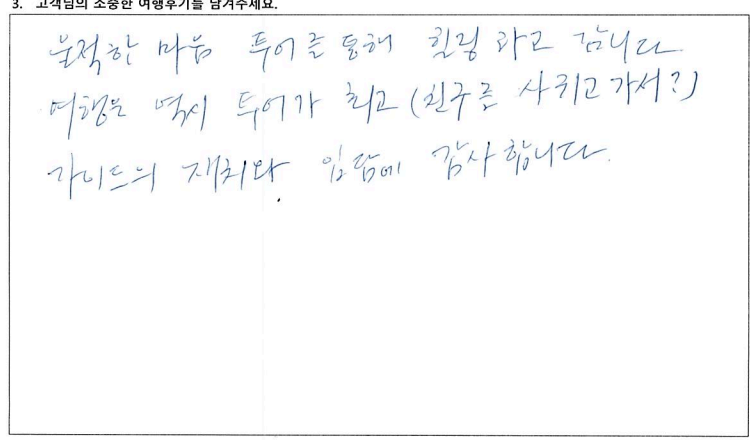 3. 고객님의 소중한 여행후기를 남겨주세요.
울적한 마음 투어를 통해 힐링 하고 갑니다.
여행은 역시 투어가 최고 (친구를 사귀고 가서?)
가이드의 재치와 입담에 감사합니다.